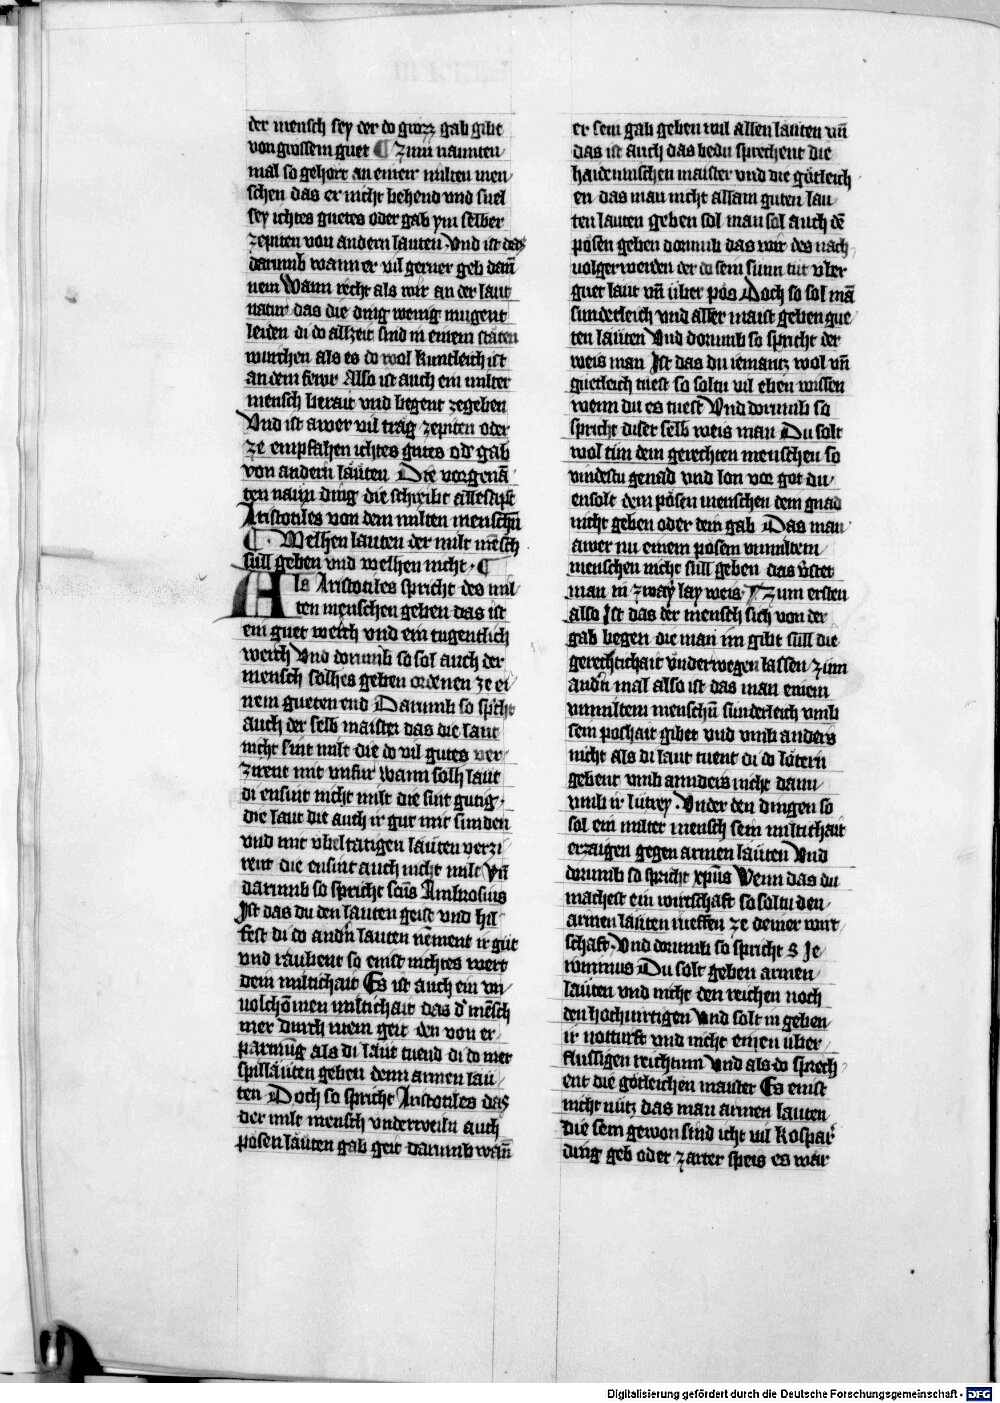 der mensch sey der do grozz gab gibt
von grossem guet ¶ Zum naunten
mal so gehort an einem milten men
schen das er nicht behend vnd snel
sey ichtes guetes oder gab ym selber
zepiten von andern lauten Vnd ist das
darumb wann er vil gerner geb dann̄
nem Wann recht als wir an der laut
natur das die ding wenig mugent
leiden di do allzeit sind in einem staten
wurchen als es do wol kuntleich ist
an dem fewr Also ist auch ein milter
mensch berait vnd begent zegeben
Vnd ist awer vil trag zepiten oder
ze emphahen ichtes gutes od' gab
von andern lauten Die vorgenā
ten naun ding die schreibt allesapt
Aristotiles von dem milten menschn̄
¶ Welhen lauten der milt mēsch
sull geben vnd welhen nicht ¶
Als Aristotiles spricht des mil
ten menschen geben das ist
ein guet werch vnd ein tugentlich
werch Vnd dorumb so sol auch der
mensch solhes geben ordenen ze ei
nem gueten end Darumb so sp'icht
auch der selb maister das die laut
nicht sint milt die do vil gutes ver
zirent mit vnfur Wann solh laut
di ensint nicht milt die sint gutig
die laut die auch ir gut mit sunden
vnd mit vbeltatigen lauten verzi
rent die ensint auch nicht milt Vn̄
darumb so spricht scūs Ambrosius
Ist das du den lauten geist vnd hil
fest di do andn̄ lauten nēment ir gut
vnd raubent so enist nichtes wert
dein miltichait Es ist auch ein vn
volchōmen miltichait das d' mēsch
mer durch ruem geit den von er
parmūg als di laut tuend di do mer
spillauten geben denn armen lau
ten Doch so spricht Aristotiles das
der milt mensch vnderweiln auch
posen lauten gab geit darumb wan̄
er sein gab geben wil allen lauten vn̄
das ist auch das bedu sprechent die
haidenischen maister vnd die gotleich
en das man nicht allain guten lau
ten lauten geben sol man sol auch dē
posen geben dorumb das wir des nach
uolger werden der do sein sunn tut vber
guet laut vn̄ uber pos Doch so sol mā
sunderleich vnd aller maist geben gue
ten lauten Vnd dorumb so spricht der
weis man Ist das du iemantz wol vn̄
guetleich tuest so soltu vil eben wissen
wenn du es tuest Vnd dorumb so
spricht diser selb weis man Du solt
wol tun dem gerechten menschen so
vindestu genad vnd lon vor got du
ensolt dem posen menschen dem gnad
nicht geben oder dein gab Das man
awer nu einem posem vnmiltem
menschen nicht sull geben das v̄stet
man in zway lay weis ¶ Zum ersten
also Ist das der mensch sich von der
gab begen die man im gibt sull die
gerechtichait vnderwegen lassen Zum
andn̄ mal also ist das man einem
vnmiltem menschn̄ sunderleich vmb
sein poshait gibet vnd vmb anders
nicht als di laut tuent di do lotern
gebent vmb annders nicht dann
vmb ir lutrey Vnder den dingen so
sol ein milter mensch sein miltichait
erzaigen gegen armen lauten Vnd
dorumb so spricht xp̄us Wenn das du
machest ein wirtschaft so soltu den
armen lauten rueffen ze deiner wirt
schaft Vnd dorumb so spricht S Je
ronimus Du solt geben armen
lauten vnd nicht den reichen noch
den hochuertigen Vnd solt in geben
ir notturft vnd nicht einen uber
flussigen reichtum Vnd als do sprech
ent die gotleichen maister Es enist
nicht nutz das man armen lauten
die sein gewon sind icht vil kospar'
ding geb oder zarter speis es war
Digitalisierung gefördert durch die Deutsche Forschungsgemeinschaft - DFG